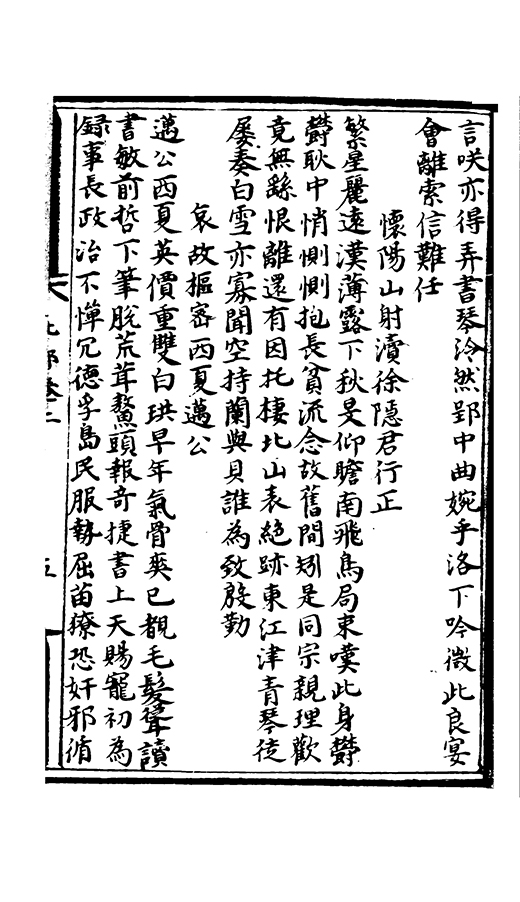 言咲亦得弄書琴泠然郢中曲婉乎洛下吟微此良宴
會離索信難任
懷陽山射瀆徐隱君行正
繁星麗遠漢薄露下秋旻仰瞻南飛鳥局束嘆此身欝
欝耿中悄惻惻抱長貧流念故舊間矧是同宗親理歡
竟無繇恨離還有因托棲北山表絕跡東江津青琴徒
屡奏白雪亦寡聞空持蘭與貝誰為致殷勤
哀故樞密西夏邁公
邁公西夏英價重雙白珙早年氣骨奭已覩毛髮聳讀
書敏前哲下筆脫荒茸鰲頭報奇捷書上天賜寵初為
録事長政治不憚冗德孚島民服勢屈苗獠恐奸邪循
卷二
五